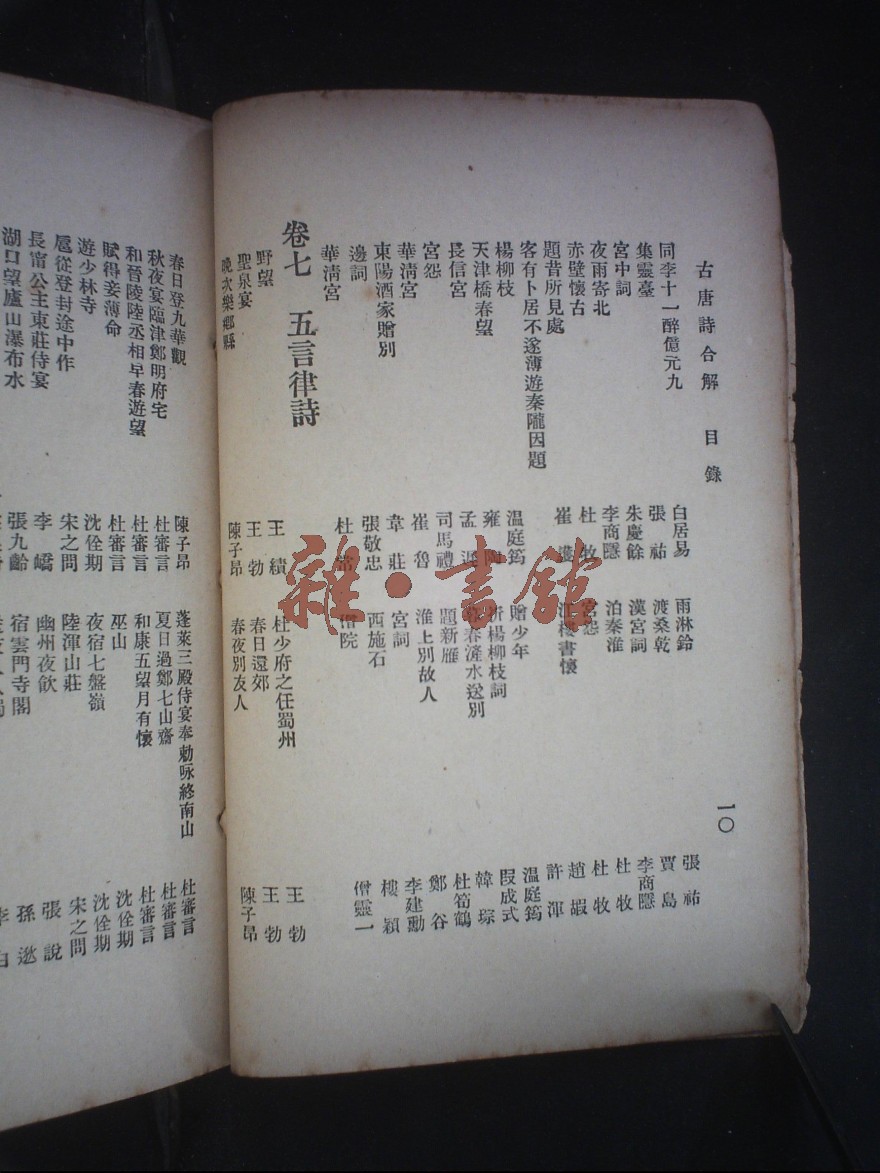 古唐詩合解 目錄 一〇
同李十一醉億元九 白居易 雨淋鈴 張祐
集靈臺 張祐 渡桑乾 賈島
宮中詞 朱慶餘 漢宮詞 李商隱
夜雨寄北 李商隱 泊秦淮 杜牧
赤壁懷古 杜牧 宮怨 杜牧
題昔所見處 崔護 江樓書懷 趙嘏
客有卜居不遂薄遊秦隴因題 許渾
楊柳枝 温庭筠 贈少年 温庭筠
天津橋春望 雍陶 折楊柳枝詞 段成式
長信宮 孟遲 春滻水送別 韓琮
宮怨 司馬禮 題新雁 杜筍鶴
華清宮 崔魯 淮上別故人 鄭谷
東陽酒家贈別 韋莊 宮詞 李建勳
邊詞 張敬忠 西施石 樓穎
華清宮 杜常 僧院 僧靈一
卷七 五言律詩
野望 王績 杜少府之任蜀州 王勃
聖泉宴 王勃 春日還郊 王勃
晚次樂鄉縣 陳子昂 春夜別友人 陳子昂
春日登九華觀 陳子昂 蓬萊三殿侍宴奉勅咏終南山 杜審言
秋夜宴臨津鄭明府宅 杜審言 夏日過鄭七山齋 杜審言
和晉陵陸丞相早春遊望 杜審言 和康五望月有懷 杜審言
賦得妾薄命 杜審言 巫山 沈佺期
遊少林寺 沈佺期 夜宿七盤嶺 沈佺期
扈從登封途中作 宋之問 陸渾山莊 宋之問
長甯公主東莊侍宴 李嶠 幽州夜飲 張說
湖口望廬山瀑布水 張九齡 宿雲門寺閣 孫逖
李白
雜·書館